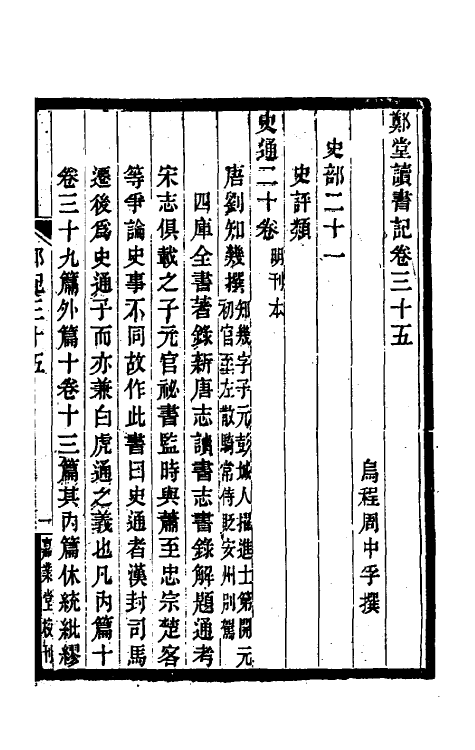 鄭堂讀書記卷三十五
烏程周中孚撰
史部二十一
史評類
史通二十卷 明刊本
唐劉知幾撰 知幾字子元彭城人擢進士第開元
初官至左散騎常侍貶安州別駕
四庫全書著錄新唐志讀書志書錄解題通考
宋志俱載之子元官祕書監時與蕭至忠宗楚客
等爭論史事不同故作此書曰史通者漢封司馬
遷後爲史通子而亦兼白虎通之義也凡內篇十
卷三十九篇外篇十卷十三篇其內篇休統紕繆
鄭記三十五
一
嘉業堂校刊